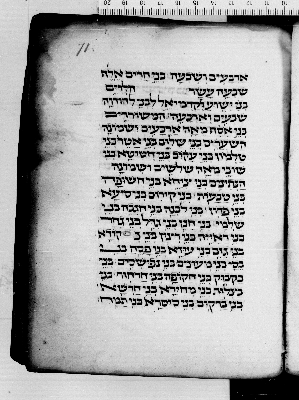 71
ארבעים ושבעה בני חרים אלף
שבעה עשר הלוים
בני ישוע לקדמיאל לבני להודוה
שבעים וארבעה המשוררים
בני אסף מאה ארבעים ושמונה
השערים בני שלום בני אטר בני
טלמון בני עקוב בני חטיטא בני
שובי מאה שלשים ושמונה
הנתינים בני צחא בני חשופא
בני טבעות בני קירוס בני סיעא
בני פדון בני לבנה בני חגבה בני
שלמי בני חנן בני גדל בני גחר
בני ראיה בני רצין בני נקודא
בני גזם בני עזא בני פסח בני
בסי בני מעונים בני נפישסים בני
בקבוק בני חקופא בני חרחור בני
בצלות בני מחידא בני חרשא
בני ברקוס בני סיסרא בני תמח